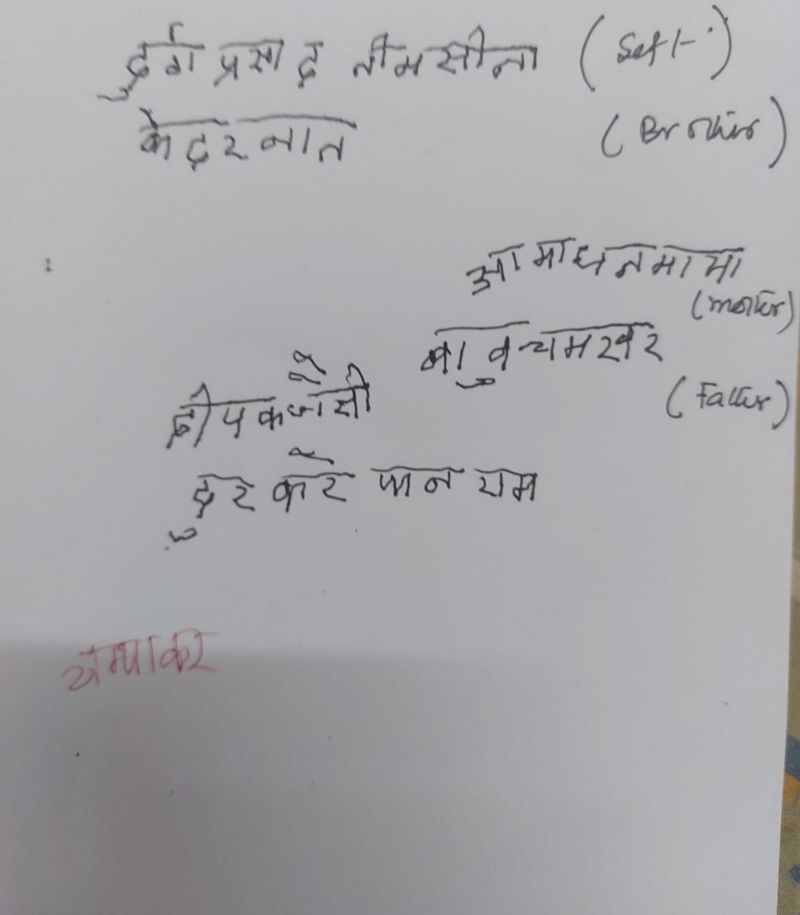 दुर्गा प्रसाद तीमसीना (Self-)
केदरनात (Brother)
आमाधनमाया
(mother)
बाबुच्यमखर
(Father)
दीपकजोसी
दुरकरे पानराम